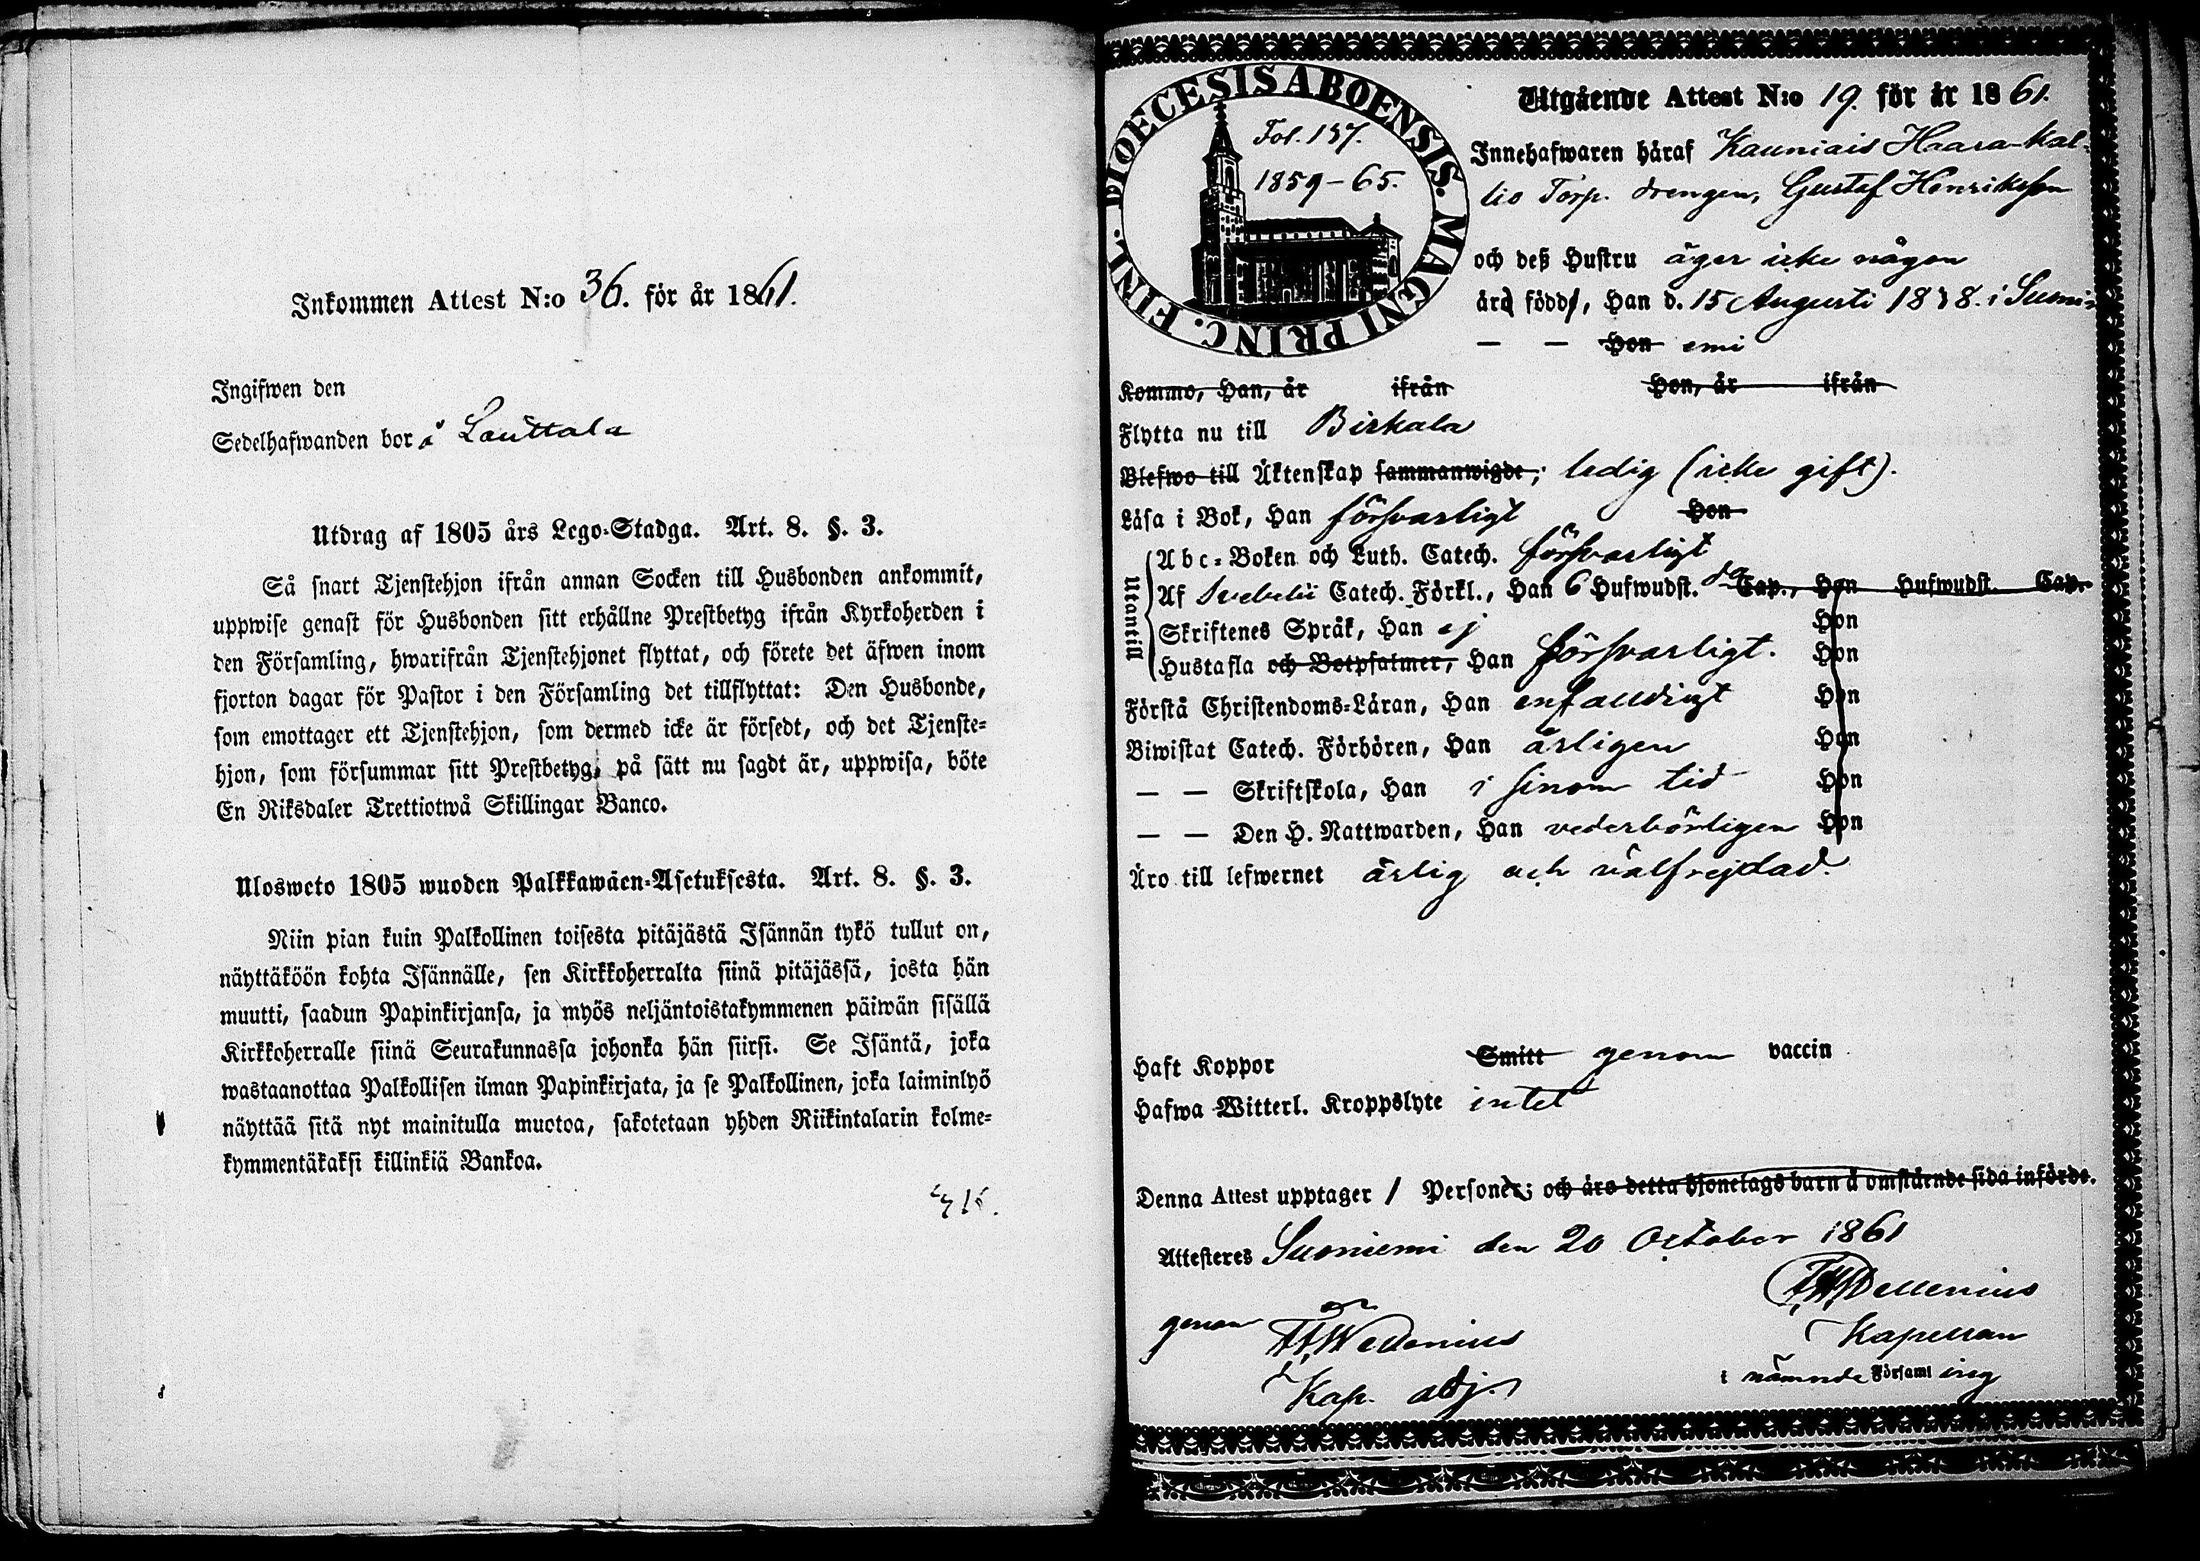 Inkommen Attest N:o 36. för år 1861.
Ingifwen den
Sedelhafwanden bor i Lauttala
Utdrag af 1805 års Lego-Stadga. Art. 8. §. 3.
Så snart Tjenstehjon ifrån annan Socken till Husbonden ankommit,
uppwise genast för Husbonden sitt erhållne Prestbetyg ifrån Kyrkoherden i
den Församling, hwarifrån Tjenstehjonet flyttat, och förete det äfwen inom
fjorton dagar för Pastor i den Församling det tillflyttat: Den Husbonde,
som emottager ett Tjenstehjon, som dermed icke är försedt, och det Tjenste-
hjon, som försummar sitt Prestbetyg, på sätt nu sagdt är, uppwisa, böte
En Riksdaler Trettiotwå Skillingar Banco.
Ulosweto 1805 wuoden Palkkawäen-Asetuksesta. Art. 8. §. 3.
Niin pian kuin Palkollinen toisesta pitäjästä Isännän tykö tullut on,
näyttäköön kohta Isännälle, sen Kirkkoherralta siinä pitäjässä, josta hän
muutti, saadun Papinkirjansa, ja myös neljäntoistakymmenen päiwän sisällä
Kirkkoherralle siinä Seurakunnassa johonka hän siirsi. Se Isäntä, joka
wastaanottaa Palkollisen ilman Papinkirjata, ja se Palkollinen, joka laiminlyö
näyttää sitä nyt mainitulla muotoa, sakotetaan yhden Riikintalarin kolme-
kymmentäkaksi killinkiä Bankoa.
DIOECESIS ABOENSIS. MAGNI PRINC. FINL.
Fol. 137.
1859-65.
Utgående Attest N:o 19. för år 1861.
Innehafwaren häraf Kauniais Haara-kal-
lio Torp. drengen, Gustaf Henriksson
och deß Hustru äger icke någon
äro född, Han d. 15 Augusti 1838. i Suoni-
— — Hon emi
Kommo, Han, år ifrån Hon, år ifrån
Flytta nu till Birkala
Blefwo till Äktenskap sammanwigde; ledig (icke gift).
Läsa i Bok, Han försvarligt Hon
Utantill
Abc-Boken och Luth. Catech. försvarligt
Af Svebelii Catech. Förkl., Han 6 Hufwudst. Cap., Hon Hufwudst. Cap.
Skriftenes Språk, Han ej Hon
Hustafla och Botpsalmer, Han försvarligt. Hon
Förstå Christendoms-Läran, Han enfalldigt Hon
Biwistat Catech. Förhören, Han årligen Hon
— — Skriftskola, Han i sinom tid Hon
— — Den H. Nattwarden, Han vederbörligen Hon
Äro till lefwernet ärlig och välfrejdad.
Haft Koppor Smitt genom vaccin
Hafwa Witterl. Kroppslyte intet
Denna Attest upptager 1 Personer; och äro detta hjonelags barn å omstående sida införde.
Attesteres Suoniemi den 20 October 1861
Wellenius
Kapellan
i nämnde Församling
genom
Kap. adj.